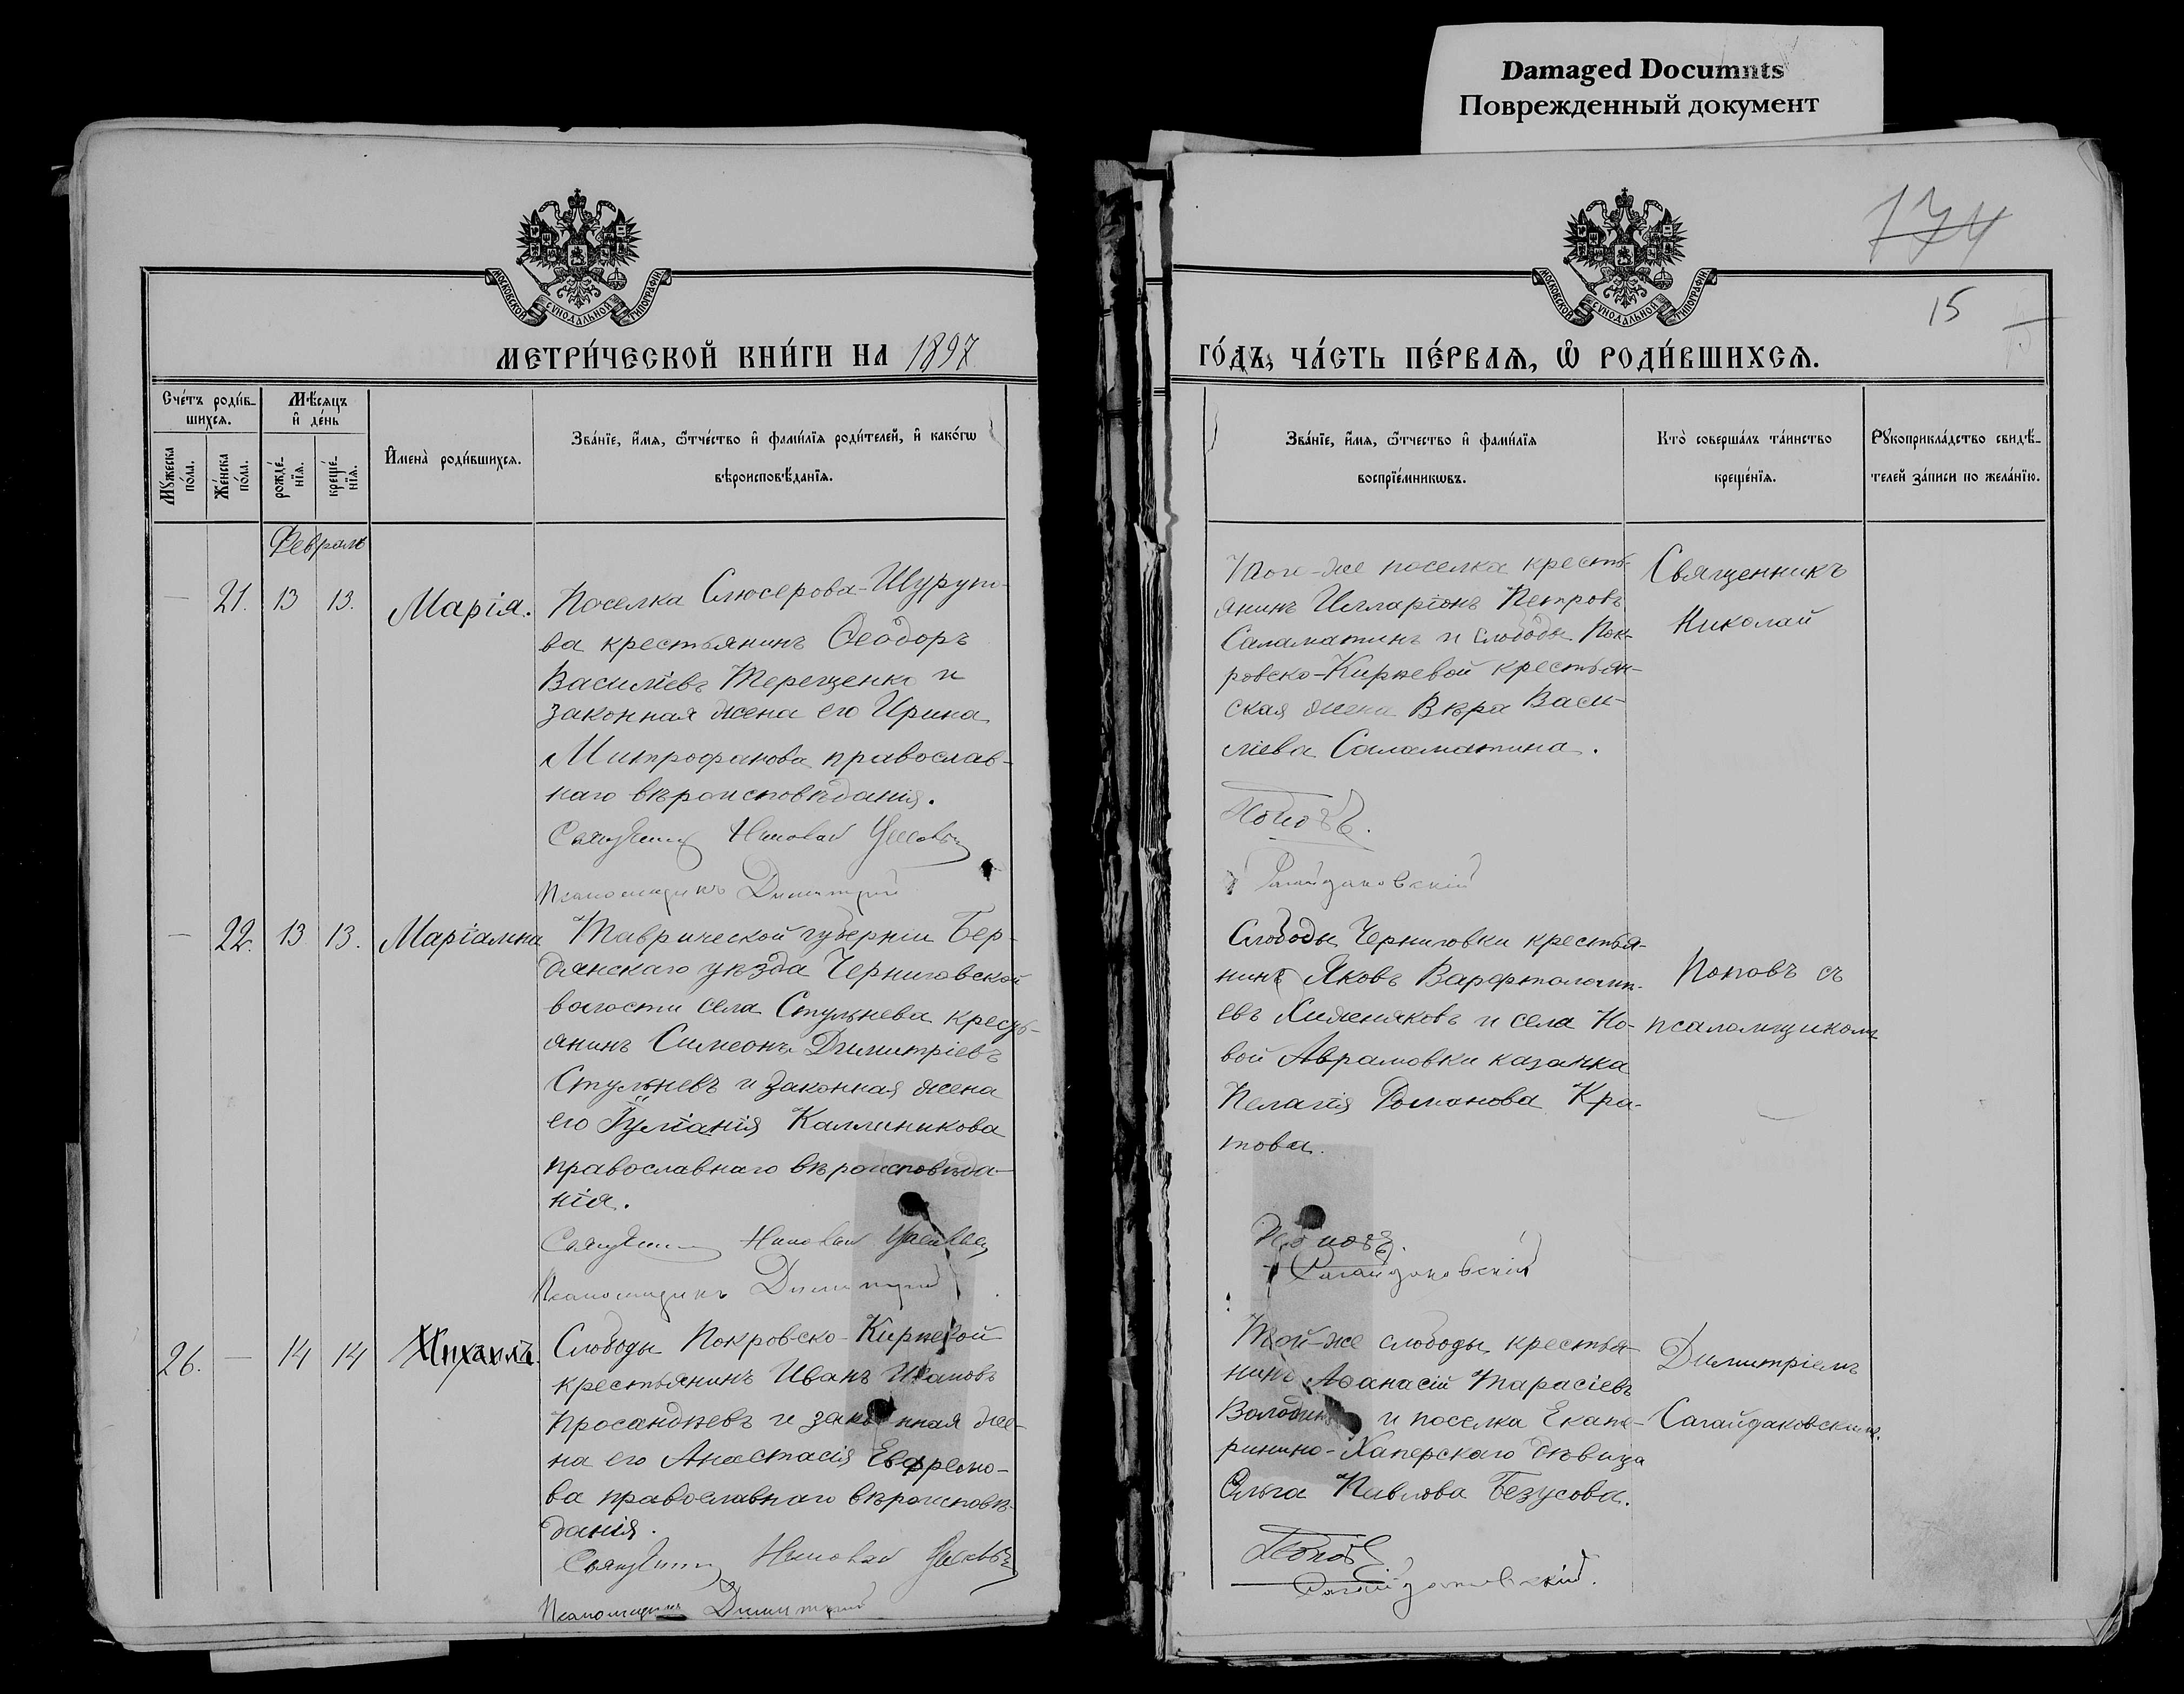 Damaged Documnts
Поврежденный документ
174
15
МОСКОВСКОЙ СУНОДАЛЬНОЙ ТИПОГРАФІИ
МОСКОВСКОЙ СУНОДАЛЬНОЙ ТИПОГРАФІИ
МЕТРИ́ЧЕСКОЙ КНИ́ГИ НА 1897
ГО́ДЪ, ЧА́СТЬ ПЕ́РВАѦ, Ѡ҆ РОДИ́ВШИХСѦ.
Сче́тъ роди́в-
шихсѧ.
Мꙋжеска по́ла.
Же́нска по́ла.
Мѣ́сѧцъ
и҆ де́нь
рожде́-
нїѧ.
креще́-
нїѧ.
И҆мена̀ роди́вшихсѧ.
Зва́нїе, и҆́мѧ, ѻ҆́тчество и҆ фамн́лїѧ роди́телей, и҆ како́гѡ
вѣроисповѣ́данїѧ.
Зва́нїе, и҆́мѧ, ѻ҆́тчество и҆ фами́лїѧ
воспрїе́мникѡвъ.
Кто̀ соверша́лъ та́инство
креще́нїѧ.
Рꙋкоприкла́дство свидѣ́-
телей за́писи по жела́нїю.
Февраль
— 21. 13 13. Марія.
Поселка Слюсерова-Шурупо-
ва крестьянинъ Ѳеодоръ
Василіевъ Терещенко и
законная жена его Ирина
Митрофанова православ-
наго вѣроисповѣданія.
Священникъ Николай
Псаломщикъ Димитрий
Того-же поселка кресть-
янинъ Илларіонъ Петровъ
Саламатинъ и слободы Пок-
ровско-Кирѣевой крестьян-
ская жена Вѣра Васи-
ліева Саламатина.
Поповъ.
Сагайдаковскій
Священникъ
Николай
— 22. 13 13. Маріамна
Таврической губерніи Бер-
дянскаго уѣзда Черниговской
волости села Стульнева кресть-
янинъ Симеонъ Димитріевъ
Стульневъ и законная жена
его Іуліанія Каллиникова
православнаго вѣроисповѣда-
нія.
Священникъ Николай
Псаломщикъ Димитрий
Слободы Черниговки крестья-
нинъ Яковъ Варфоломе-
евъ Хижняковъ и села Но-
вой Аврамовки казачка
Пелагія Романова Кра-
това.
Поповъ.
Сагайдаковскій
Поповъ съ
псаломщикомъ
26. — 14 14 Михаилъ.
Слободы Покровско-Кирѣевой
крестьянинъ Иванъ Ивановъ
Просандѣевъ и законная же-
на его Анастасія Евфремо-
ва православнаго вѣроисповѣ-
данія.
Священникъ Николай
Псаломщикъ Димитрий
Той-же слободы крестья-
нинъ Аѳанасій Тарасіевъ
и поселка Екате-
ринино-Хаперскаго дѣвица
Ольга Павлова Безусова.
Поповъ
Сагайдаковскій.
Димитріемъ
Сагайдаковскимъ.